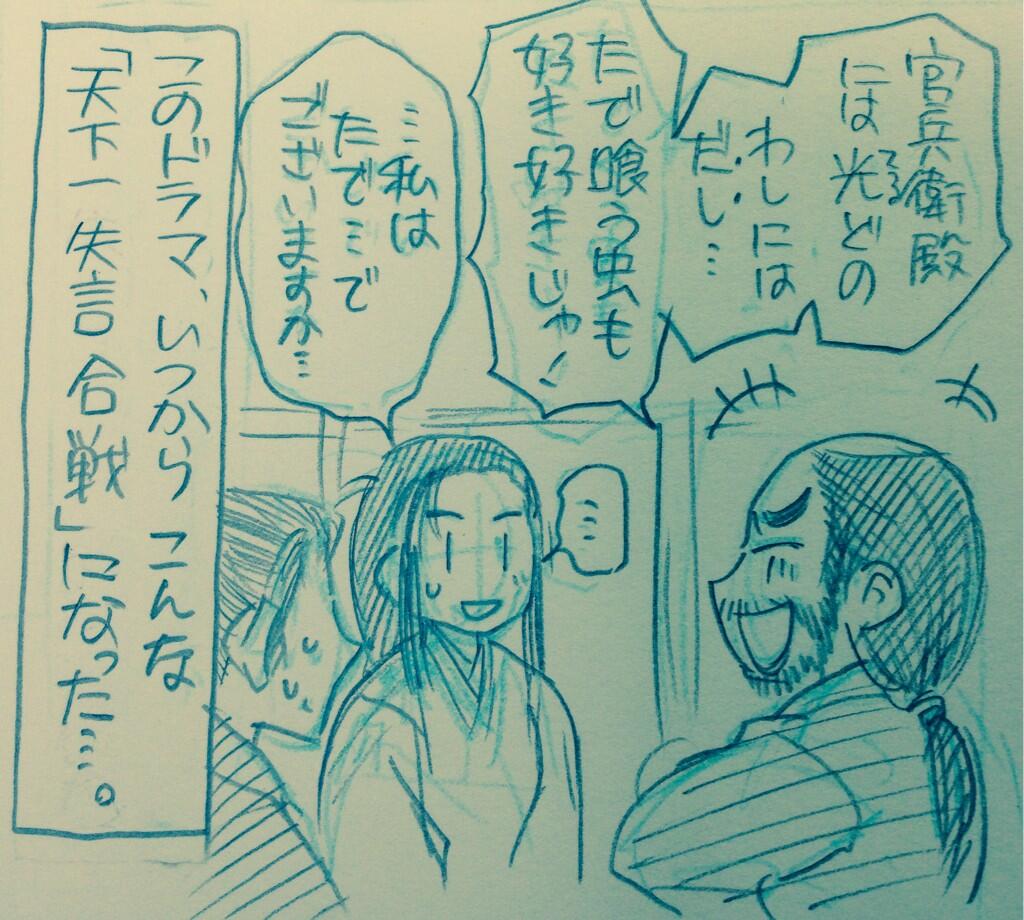 官兵衛殿
には光どの
てる
わしには
だし…
たで喰う虫も
好き好きじゃ!
…私は
たで…で
ございますか…
…
このドラマ、いつからこんな
「天下一失言合戦」になった…。